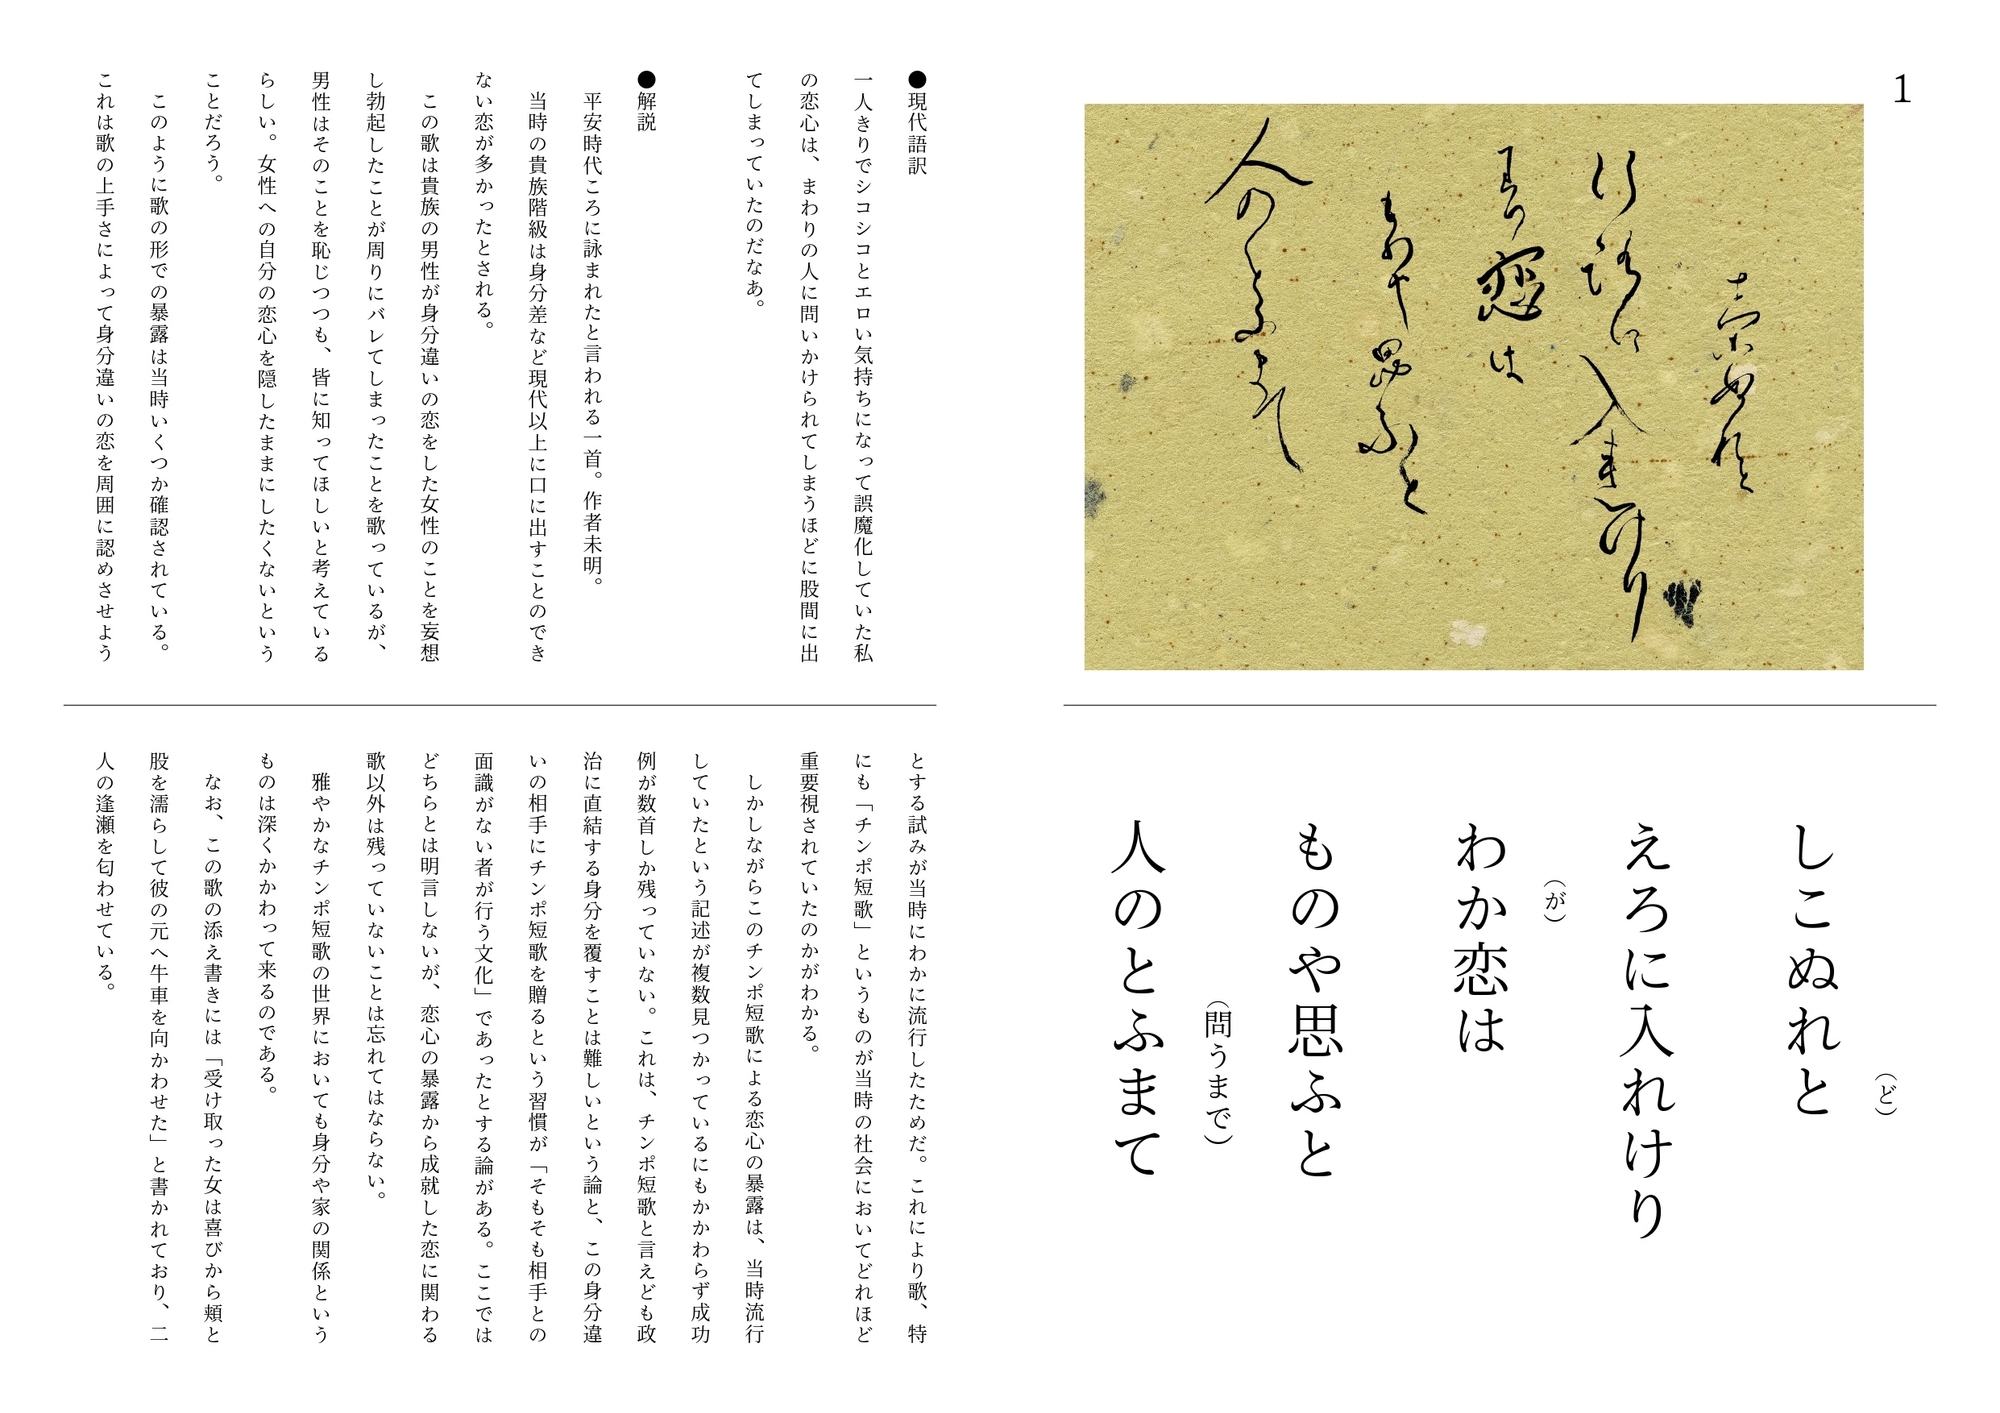 1
しこぬれと
(ど)
えろに入れけり
わか恋は
(が)
ものや思ふと
人のとふまて
(問うまで)
●現代語訳
一人きりでシコシコとエロい気持ちになって誤魔化していた私
の恋心は、まわりの人に問いかけられてしまうほどに股間に出
てしまっていたのだなあ。
●解説
平安時代ころに詠まれたと言われる一首。作者未明。
当時の貴族階級は身分差など現代以上に口に出すことのでき
ない恋が多かったとされる。
この歌は貴族の男性が身分違いの恋をした女性のことを妄想
し勃起したことが周りにバレてしまったことを歌っているが、
男性はそのことを恥じつつも、皆に知ってほしいと考えている
らしい。女性への自分の恋心を隠したままにしたくないという
ことだろう。
このように歌の形での暴露は当時いくつか確認されている。
これは歌の上手さによって身分違いの恋を周囲に認めさせよう
とする試みが当時にわかに流行したためだ。これにより歌、特
にも「チンポ短歌」というものが当時の社会においてどれほど
重要視されていたのかがわかる。
しかしながらこのチンポ短歌による恋心の暴露は、当時流行
していたという記述が複数見つかっているにもかかわらず成功
例が数首しか残っていない。これは、チンポ短歌と言えども政
治に直結する身分を覆すことは難しいという論と、この身分違
いの相手にチンポ短歌を贈るという習慣が「そもそも相手との
面識がない者が行う文化」であったとする論がある。ここでは
どちらとは明言しないが、恋心の暴露から成就した恋に関わる
歌以外は残っていないことは忘れてはならない。
雅やかなチンポ短歌の世界においても身分や家の関係という
ものは深くかかわって来るのである。
なお、この歌の添え書きには「受け取った女は喜びから頬と
股を濡らして彼の元へ牛車を向かわせた」と書かれており、二
人の逢瀬を匂わせている。